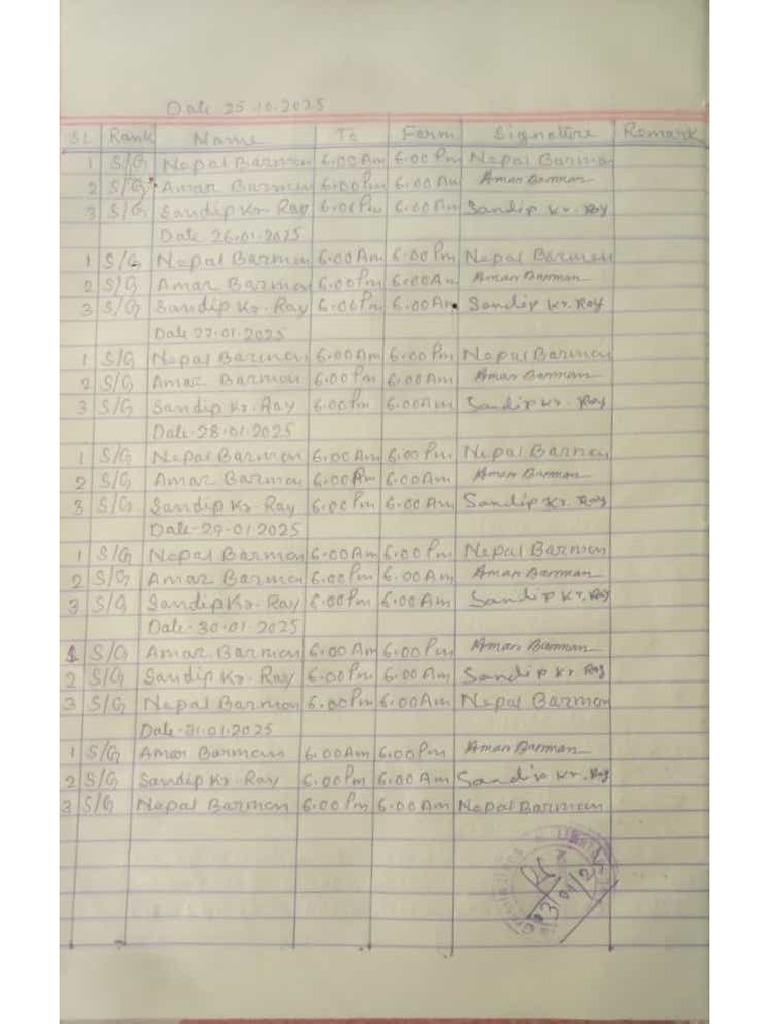 Date 25.10.2025
SL Rank Name To Form Signature Remark
1 S/G Nepal Barmon 6.00 Am 6.00 Pm Nepal Barmon
2 S/G Amar Barmon 6.00 Pm 6.00 Am Aman Barman
3 S/G Sandip Kr. Ray 6.00 Pm 6.00 Am Sandip Kr. Ray
Date 26.01.2025
1 S/G Nepal Barmon 6.00 Am 6.00 Pm Nepal Barmon
2 S/G Amar Barmon 6.00 Pm 6.00 Am Aman Barman
3 S/G Sandip Kr. Ray 6.00 Pm 6.00 Am Sandip Kr. Ray
Date 27.01.2025
1 S/G Nepal Barmon 6.00 Am 6.00 Pm Nepal Barmon
2 S/G Amar Barmon 6.00 Pm 6.00 Am Aman Barman
3 S/G Sandip Kr. Ray 6.00 Pm 6.00 Am Sandip Kr. Ray
Date-28.01.2025
1 S/G Nepal Barmon 6.00 Am 6.00 Pm Nepal Barmon
2 S/G Amar Barmon 6.00 Pm 6.00 Am Aman Barman
3 S/G Sandip Kr. Ray 6.00 Pm 6.00 Am Sandip Kr. Ray
Date-29-01.2025
1 S/G Nepal Barmon 6.00 Am 6.00 Pm Nepal Barmon
2 S/G Amar Barmon 6.00 Pm 6.00 Am Aman Barman
3 S/G Sandip Kr. Ray 6.00 Pm 6.00 Am Sandip Kr. Ray
Date-30-01.2025
1 S/G Amar Barmon 6.00 Am 6.00 Pm Aman Barman
2 S/G Sandip Kr. Ray 6.00 Pm 6.00 Am Sandip Kr Ray
3 S/G Nepal Barmon 6.00 Pm 6.00 Am Nepal Barmon
Date-31.01.2025
1 S/G Amar Barmon 6.00 Am 6.00 Pm Aman Barman
2 S/G Sandip Kr. Ray 6.00 Pm 6.00 Am Sandip Kr. Ray
3 S/G Nepal Barmon 6.00 Pm 6.00 Am Nepal Barmon